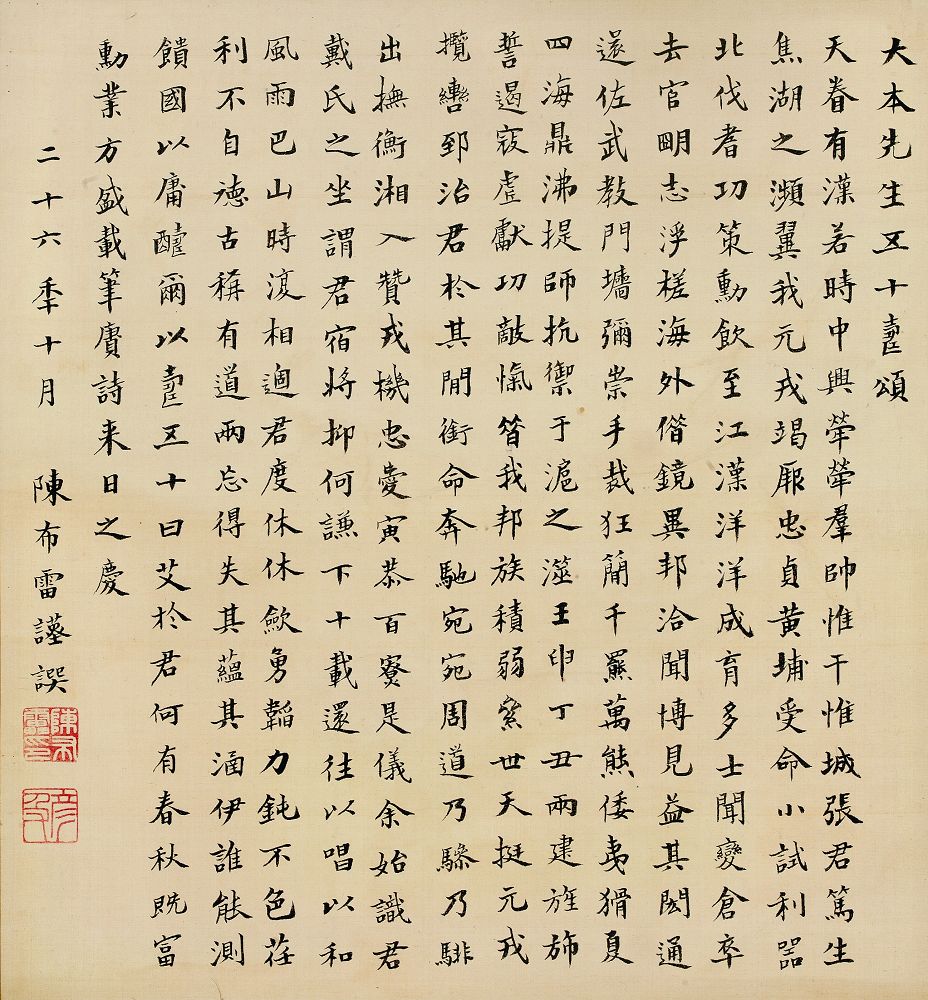 大本先生五十壽頌
天眷有漢若時中興犖犖羣帥惟干惟城張君篤生
焦湖之瀕翼我元戎竭厥忠貞黃埔受命小試利器
北伐耆功策勳飲至江漢洋洋成育多士聞變倉卒
去官明志浮槎海外借鏡異邦洽聞博見益其閎通
還佐武教門墻彌崇手裁狂簡千羆萬熊倭夷猾夏
四海鼎沸提師抗禦于滬之澨壬申丁丑兩建旌旆
誓遏寇虐獻功敵愾昝我邦族積弱絫世天挺元戎
攬轡郅治君於其閒銜命奔馳宛宛周道乃驂乃騑
出撫衡湘入贊戎機忠愛寅恭百寮是儀余始識君
戴氏之坐謂君宿將抑何謙下十載還往以唱以和
風雨巴山時復相過君度休休歛勇韜力鈍不色荏
利不自德古稱有道兩忘得失其蘊其涵伊誰能測
饋國以庸醻爾以壽五十曰艾於君何有春秋既富
勳業方盛載筆賡詩来日之慶
二十六季十月 陳布雷謹譔
陳布雷印